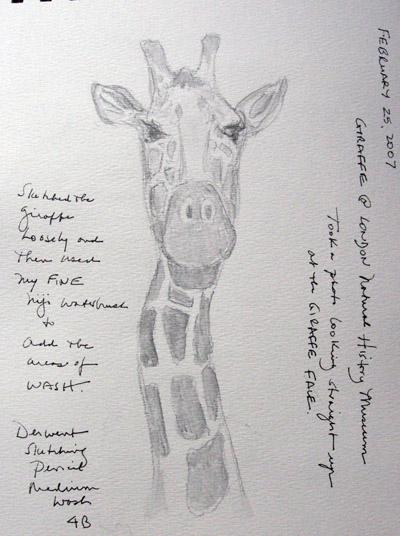 FEBRUARY 25, 2007
GIRAFFE @ LONDON Natural History Museum
Took a photo looking straight up
at the GIRAFFE FACE.
Sketched the
giraffe
loosely and
then used
my FINE
Niji Waterbrush
to
add the
areas of
WASH.
Derwent
Sketching
Pencil
Medium
Wash
4B